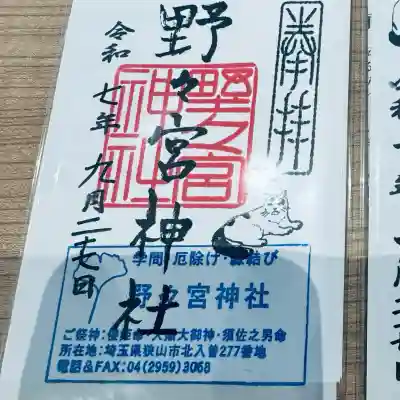 奉拝
野々宮神社
野々宮神社
令和七年九月二十七日
学問・厄除け・縁結び
野々宮神社
ご祭神：倭姫命・天照大御神・須佐之男命
所在地：埼玉県狭山市北入曽277番地
電話＆FAX：04(2959)3068